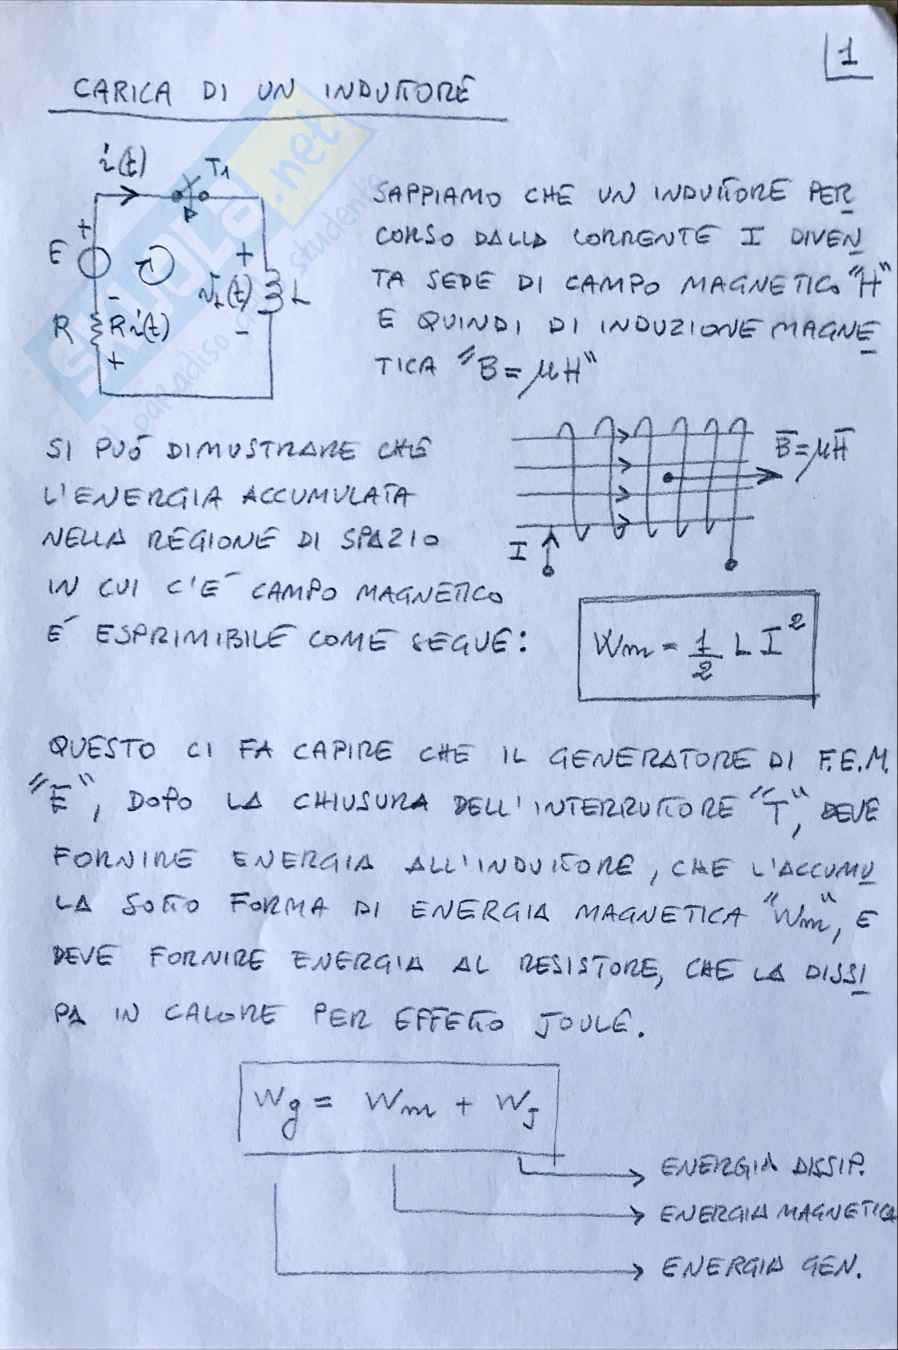 1
CARICA DI UN INDUTTORE
i(t)
T1
+
E
-
R
Ri(t)
+
+
vL(t)
-
L
SAPPIAMO CHE UN INDUTTORE PER
CORSO DALLA CORRENTE I DIVEN
TA SEDE DI CAMPO MAGNETICO "H"
E QUINDI DI INDUZIONE MAGNE
TICA "B = μH"
SI PUÓ DIMOSTRARE CHE
L'ENERGIA ACCUMULATA
NELLA REGIONE DI SPAZIO
IN CUI C'É CAMPO MAGNETICO
É ESPRIMIBILE COME SEGUE:
B̅ = μH̅
I
Wm = 1/2 L I²
QUESTO CI FA CAPIRE CHE IL GENERATORE DI F.E.M.
"E", DOPO LA CHIUSURA DELL'INTERRUTTORE "T", DEVE
FORNIRE ENERGIA ALL'INDUTTORE, CHE L'ACCUMU
LA SOTTO FORMA DI ENERGIA MAGNETICA "Wm", E
DEVE FORNIRE ENERGIA AL RESISTORE, CHE LA DISSI
PA IN CALORE PER EFFETTO JOULE.
Wg = Wm + WJ
ENERGIA DISSIP.
ENERGIA MAGNETICA
ENERGIA GEN.
SKUOLA.net
paradiso
studente